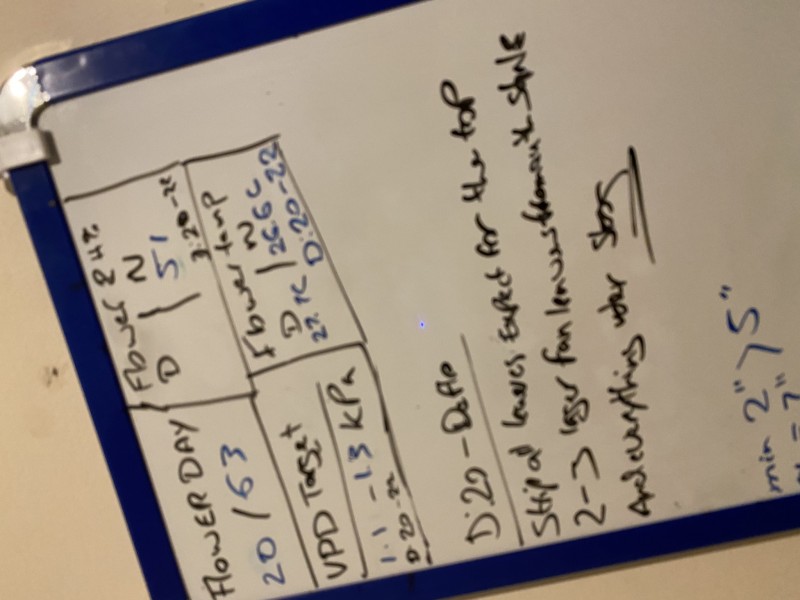 FLOWER DAY
20/63
Flower RH%
D | N
51
D:20-22
VPD Target
1.1-1.3 KPa
D:20-22
Flower temp
D | N
22.7C | 26.6C
D:20-22
D:20-Defo
Strip all leaves Expect for the top
2-3 layer fan leaves
And everything
min 2" > 5"